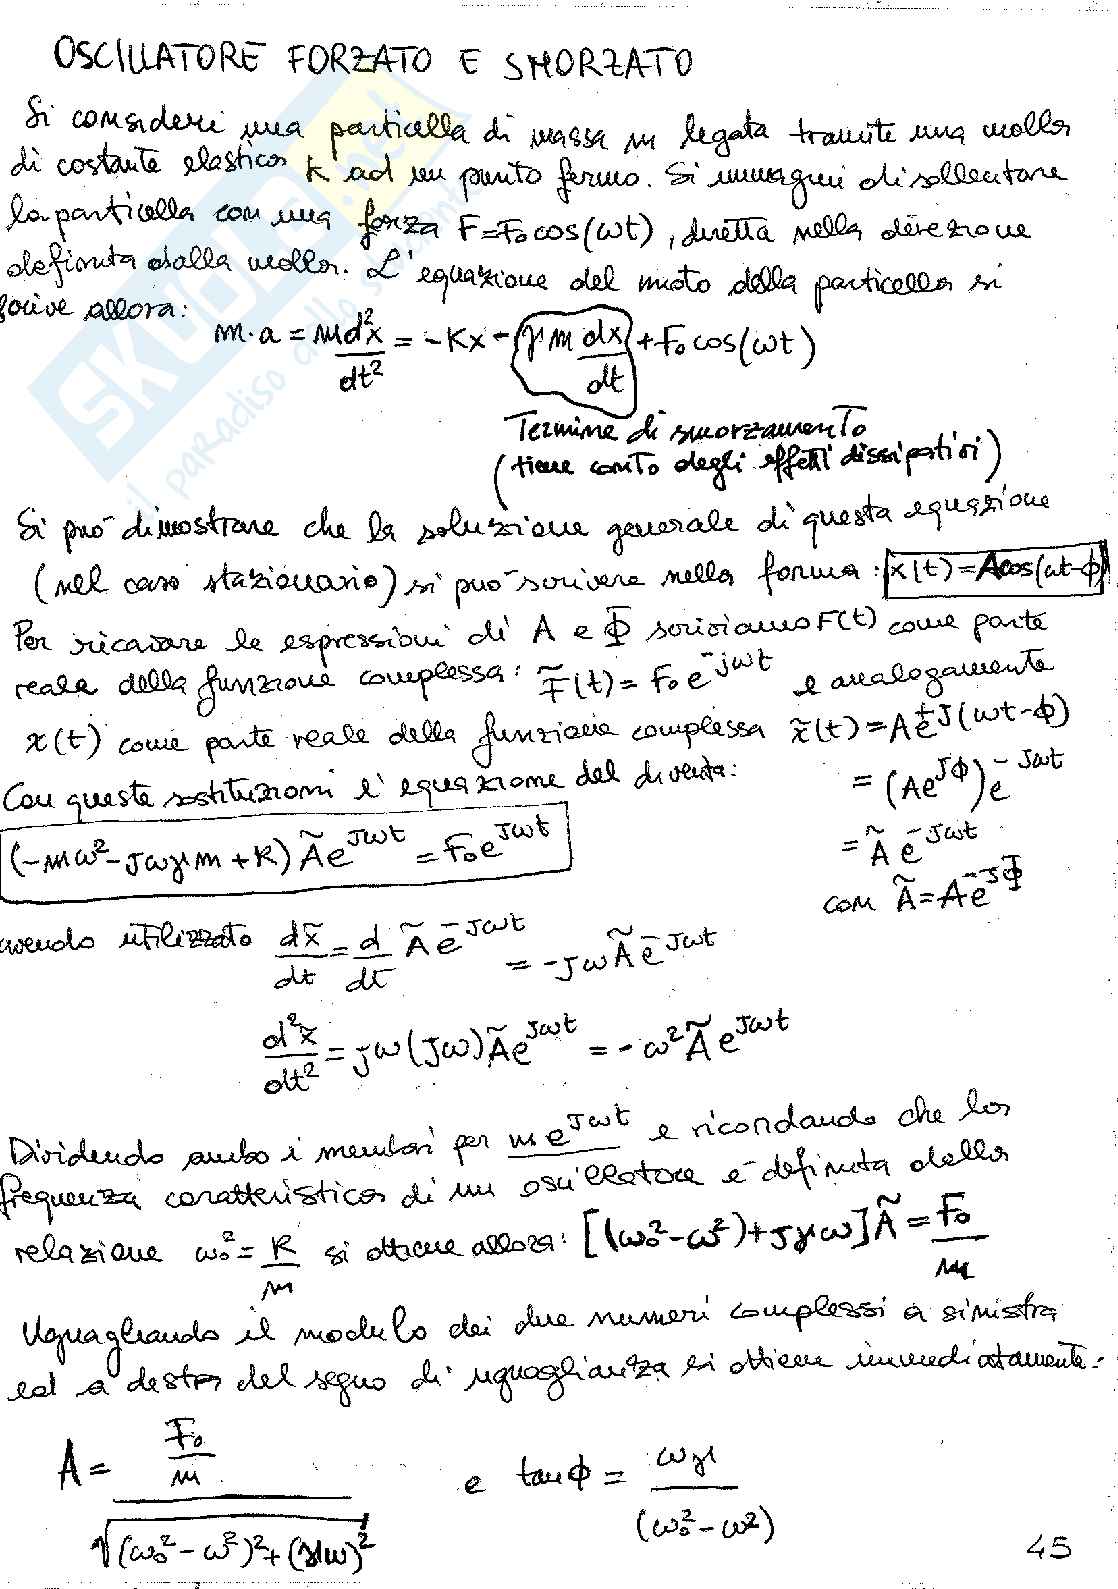 OSCILLATORE FORZATO E SMORZATO
Si consideri una particella di massa m legata tramite una molla
di costante elastica K ad un punto fermo. Si immagini di sollecitare
la particella con una forza F=F₀cos(ωt), diretta nella direzione
definita dalla molla. L'equazione del moto della particella si
scrive allora:
m·a = m d²x/dt² = -Kx - γm dx/dt + F₀cos(ωt)
Termine di smorzamento
(tiene conto degli effetti dissipativi)
Si può dimostrare che la soluzione generale di questa equazione
(nel caso stazionario) si può scrivere nella forma: x(t)=Acos(ωt-ϕ)
Per ricavare le espressioni di A e Φ scriviamo F(t) come parte
reale della funzione complessa: F̃(t) = F₀e^-jωt e analogamente
x(t) come parte reale della funzione complessa x̃(t) = Ae^+j(ωt-ϕ)
= (Ae^jϕ)e^-jωt
Con queste sostituzioni l'equazione del diventa:
= Ã e^-jωt
(-mω²-jωγm+K) Ãe^jωt = F₀e^jωt
com Ã=Ae^-jΦ
avendo utilizzato dx̃/dt = d/dt Ã e^-jωt = -jωÃe^-jωt
d²x̃/dt² = jω(jω)Ãe^jωt = -ω²Ãe^jωt
Dividendo ambo i membri per me^jωt e ricordando che la
frequenza caratteristica di un oscillatore è definita dalla
relazione ω₀² = K/m si ottiene allora: [(ω₀²-ω²)+jγω]Ã = F₀/m
Uguagliando il modulo dei due numeri complessi a sinistra
ed a destra del segno di uguaglianza si ottiene immediatamente:
A = (F₀/m)/√((ω₀²-ω²)²+(γω)²) e tanϕ = ωγ/(ω₀²-ω²)
45
SKUOLA.net
il paradiso dello studente